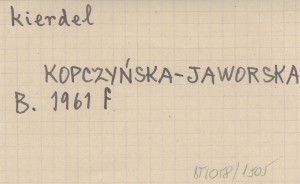 kierdel
KOPCZYŃSKA-JAWORSKA
B. 1961 f